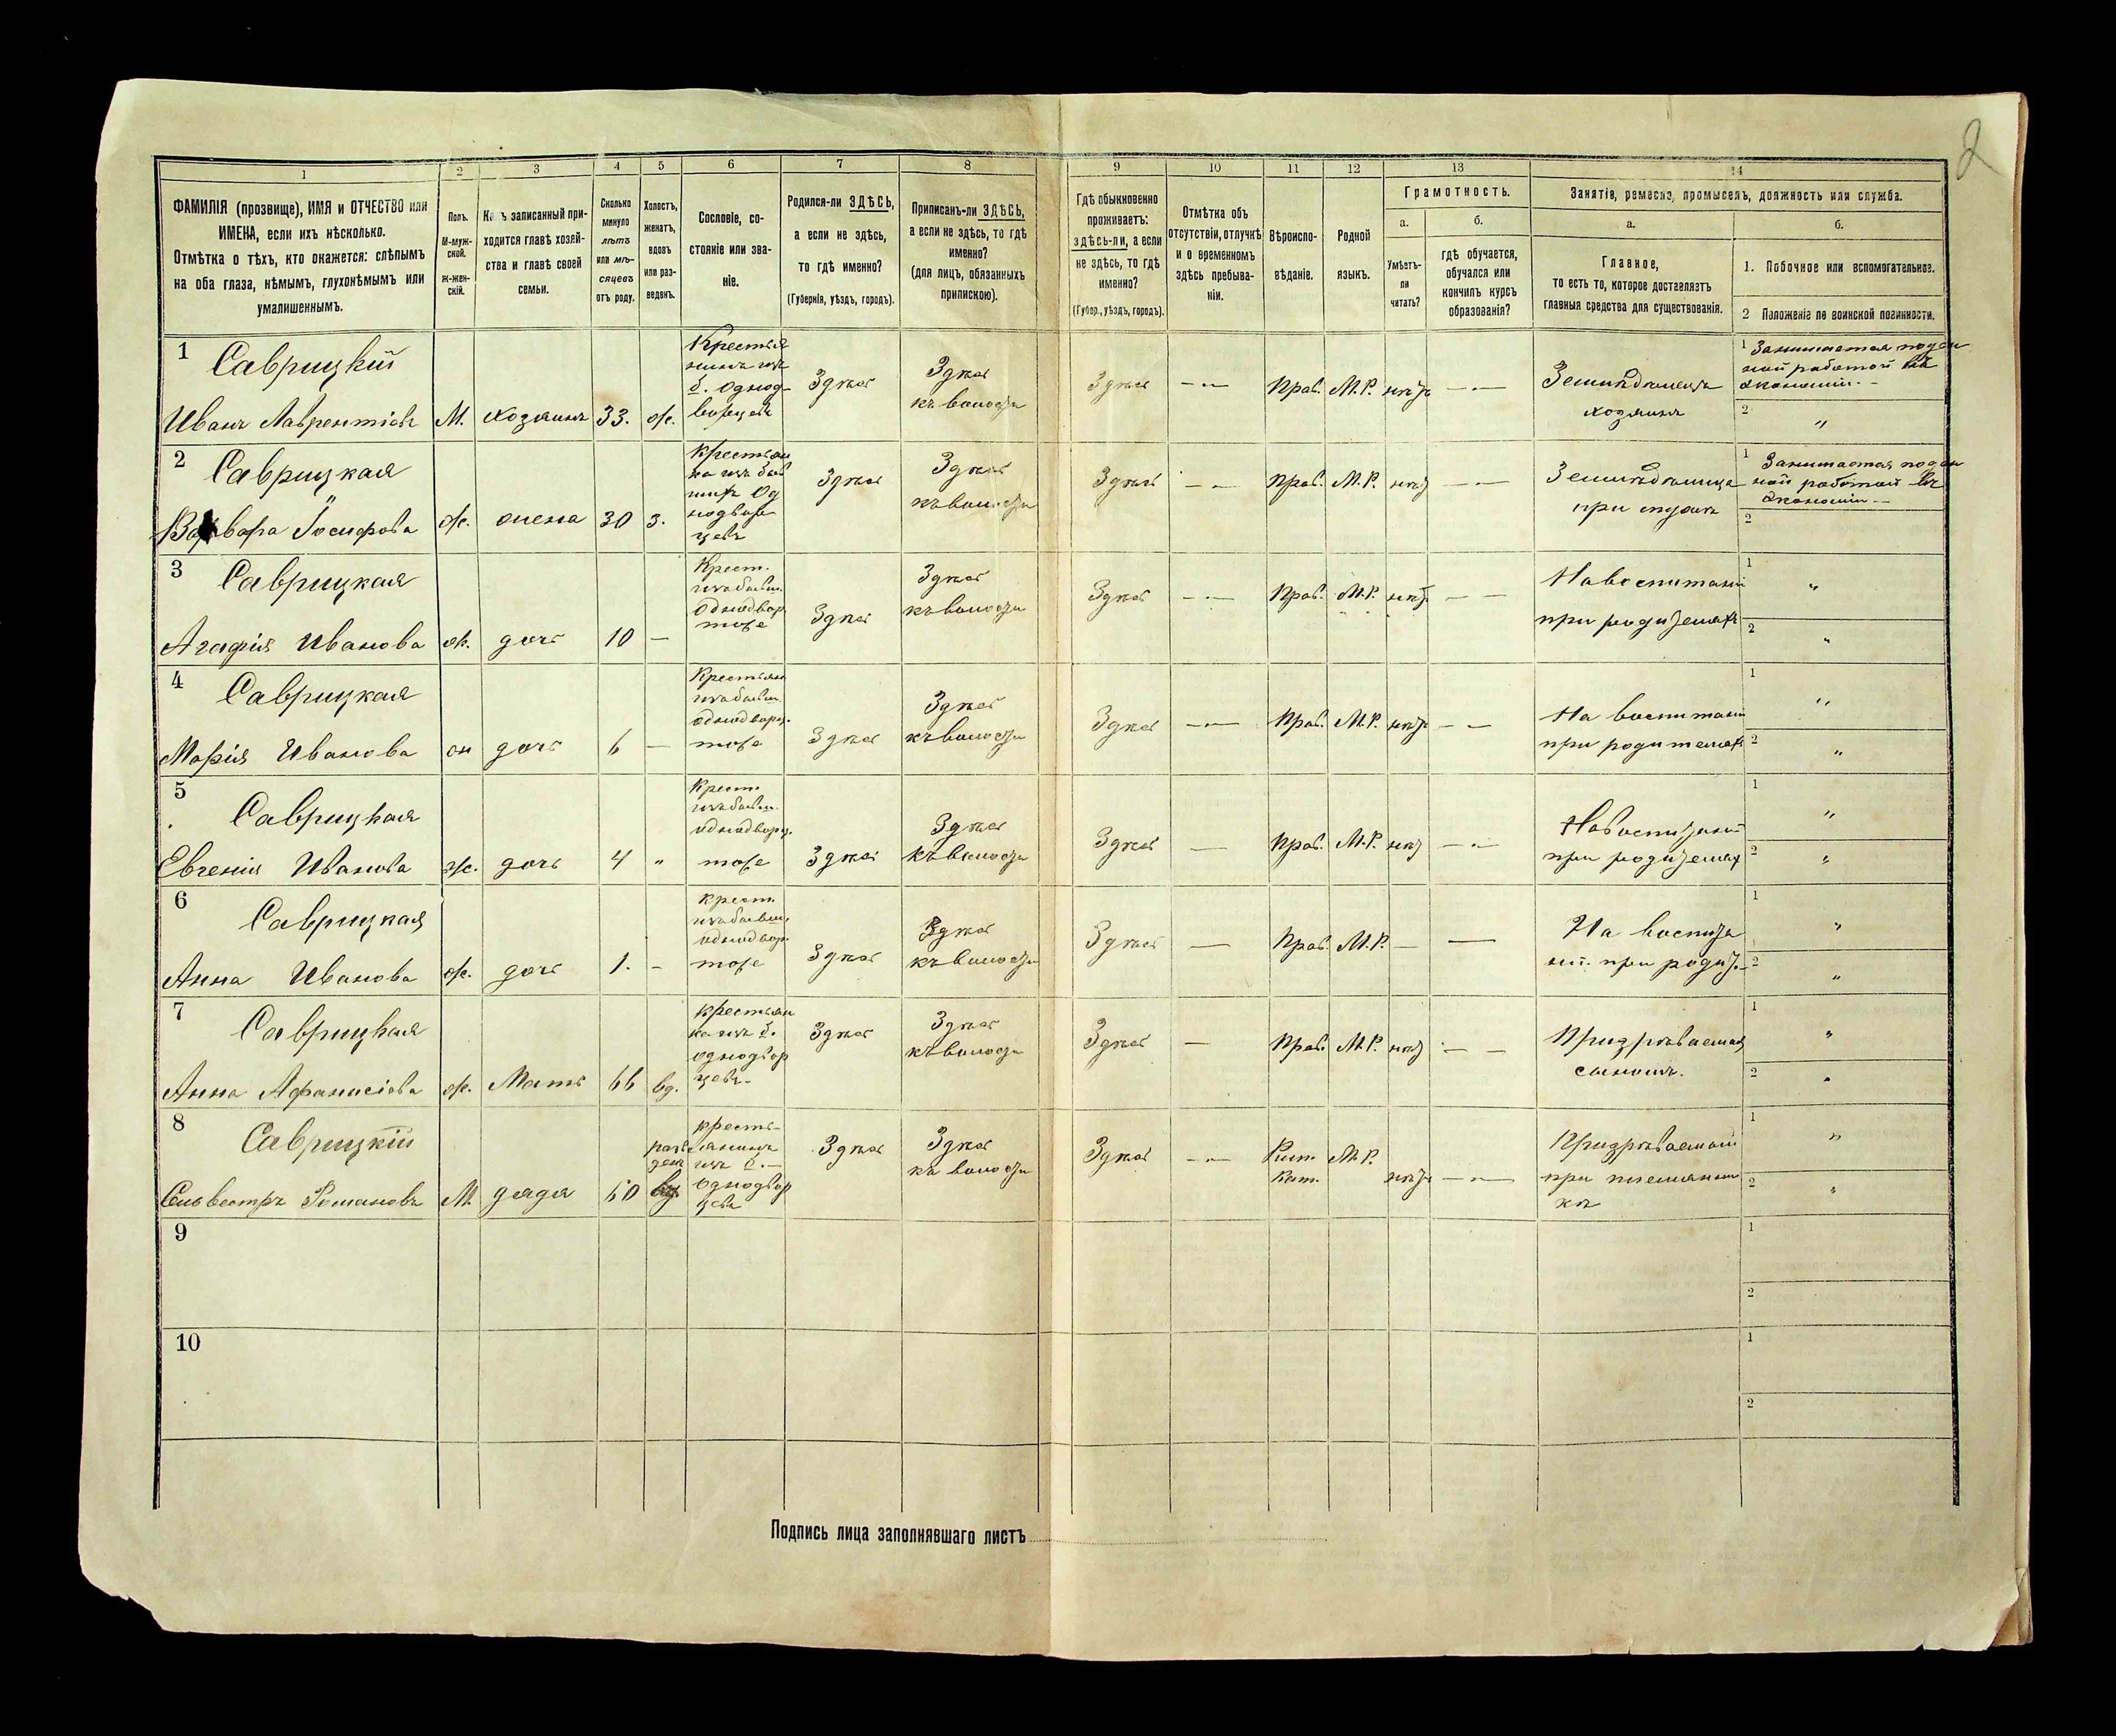 2
1 2 3 4 5 6 7 8 9 10 11 12 13 14
ФАМИЛІЯ (прозвище), ИМЯ и ОТЧЕСТВО или
ИМЕНА, если ихъ нѣсколько.
Отмѣтка о тѣхъ, кто окажется: слѣпымъ
на оба глаза, нѣмымъ, глухонѣмымъ или
умалишеннымъ.
Полъ.
М-муж-
ской.
ж-жен-
скій.
записанный при-
ходится главѣ хозяй-
ства и главѣ своей
семьи.
Сколько
минуло
лѣтъ
или мѣ-
сяцевъ
отъ роду.
Холостъ,
женатъ,
вдовъ
или раз-
веденъ.
Сословіе, со-
стояніе или зва-
ніе.
Родился-ли ЗДѢСЬ,
а если не здѣсь,
то гдѣ именно?
(Губернія, уѣздъ, городъ).
Приписанъ-ли ЗДѢСЬ,
а если не здѣсь, то гдѣ
именно?
(для лицъ, обязанныхъ
припискою).
Гдѣ обыкновенно
проживаетъ:
здѣсь-ли, а если
не здѣсь, то гдѣ
именно?
(Губер., уѣздъ, городъ).
Отмѣтка объ
отсутствіи, отлучкѣ
и о временномъ
здѣсь пребыва-
ніи.
Вѣроиспо-
вѣданіе.
Родной
языкъ.
Грамотность.
а.
Умѣетъ-
ли
читать?
б.
гдѣ обучается,
обучался или
кончилъ курсъ
образованія?
Занятіе, ремесло, промыселъ, должность или служба.
а.
Главное,
то есть то, которое доставляетъ
главныя средства для существованія.
б.
1. Побочное или вспомогательное.
2 Положеніе по воинской повинности.
1 Саврицкій
Иванъ Лаврентіевъ
М.
хозяинъ
33.
ж.
Крестья
нинъ изъ
б. однод-
ворцевъ
Здѣсь
Здѣсь
къ волости
Здѣсь
— —
Прав.
М.Р.
нѣтъ
— —
Земледѣлецъ
хозяинъ
1 Занимается подён
ной работой въ
экономіи. —
2 "
2 Саврицкая
Варвара Іосифова
ж.
жена
30
з.
крестьян
ка изъ быв
шихъ од
нодвор
цевъ
Здѣсь
Здѣсь
къ волости
Здѣсь
— —
Прав.
М.Р.
нѣт
— —
Земледѣлица
при мужѣ
1 Занимается подён
ной работой въ
экономіи —
2
3 Саврицкая
Агафія Иванова
ж.
дочь
10
—
Крест.
изъ бывш.
однодвор
тоже
Здѣсь
Здѣсь
къ волости
Здѣсь
— —
Прав.
М.Р.
нѣт.
— —
На воспитаніи
при родителяхъ
1 "
2 "
4 Саврицкая
Марія Иванова
ж
дочь
6
—
Крестьян
изъ бывш
однодворц.
тоже
Здѣсь
Здѣсь
къ волости
Здѣсь
— —
Прав.
М.Р.
нѣтъ
— —
На воспитаніи
при родителяхъ
1 "
2 "
5 Саврицкая
Евгенія Иванова
ж.
дочь
4
"
Крест.
изъ бывш.
однодворц.
тоже
Здѣсь
Здѣсь
къ волости
Здѣсь
—
Прав.
М.Р.
нѣт
— —
На воспитаніи
при родителях
1 "
2 "
6 Саврицкая
Анна Иванова
ж.
дочь
1.
—
крест.
изъ бывш.
однодвор.
тоже
Здѣсь
Здѣсь
къ волости
Здѣсь
—
Прав.
М.Р.
—
—
На воспита
ніи. при родит.
1 "
2 "
7 Саврицкая
Анна Афанасіева
ж.
Мать
66
вд.
крестьян
ка изъ б.
однодвор
цевъ
Здѣсь
Здѣсь
къ волости
Здѣсь
—
Прав.
М.Р.
нѣт
— —
Призрѣваемая
сыномъ.
1 "
2 "
8 Саврицкій
Сильвестръ Романовъ
М
дядя
60
кресть-
янинъ
изъ б. —
однодвор
цевъ
Здѣсь
Здѣсь
къ волости
Здѣсь
— —
Рим.
Кат.
М.Р.
нѣтъ
— —
Призрѣваемый
при племянни
кѣ
1 "
2 "
9
1
2
10
1
2
Подпись лица заполнявшаго листъ